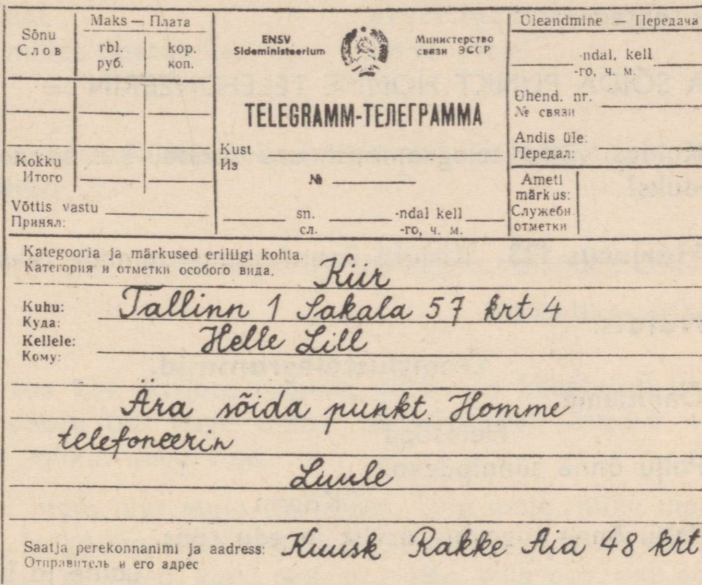 Sõnu
Слов
Maks — Плата
rbl.
руб.
kop.
коп.
Kokku
Итого
Võttis vastu
Принял:
ENSV
Sideministeerium
Министерство
связи ЭССР
TELEGRAMM-ТЕЛЕГРАММА
Kust
Из
№
sn.
сл.
-ndal kell
-го, ч. м.
Üleandmine — Передача
-ndal, kell
-го, ч. м.
Ühend. nr.
№ связи
Andis üle:
Передал:
Ameti
märkus:
Служебн.
отметки
Kategooria ja märkused eriliigi kohta.
Категория и отметки особого вида.
Kiir
Kuhu:
Куда:
Tallinn 1 Sakala 57 krt 4
Kellele:
Кому:
Helle Lill
Ära sõida punkt Homme
telefoneerin
Luule
Saatja perekonnanimi ja aadress:
Отправитель и его адрес
Kuusk Rakke Aia 48 krt